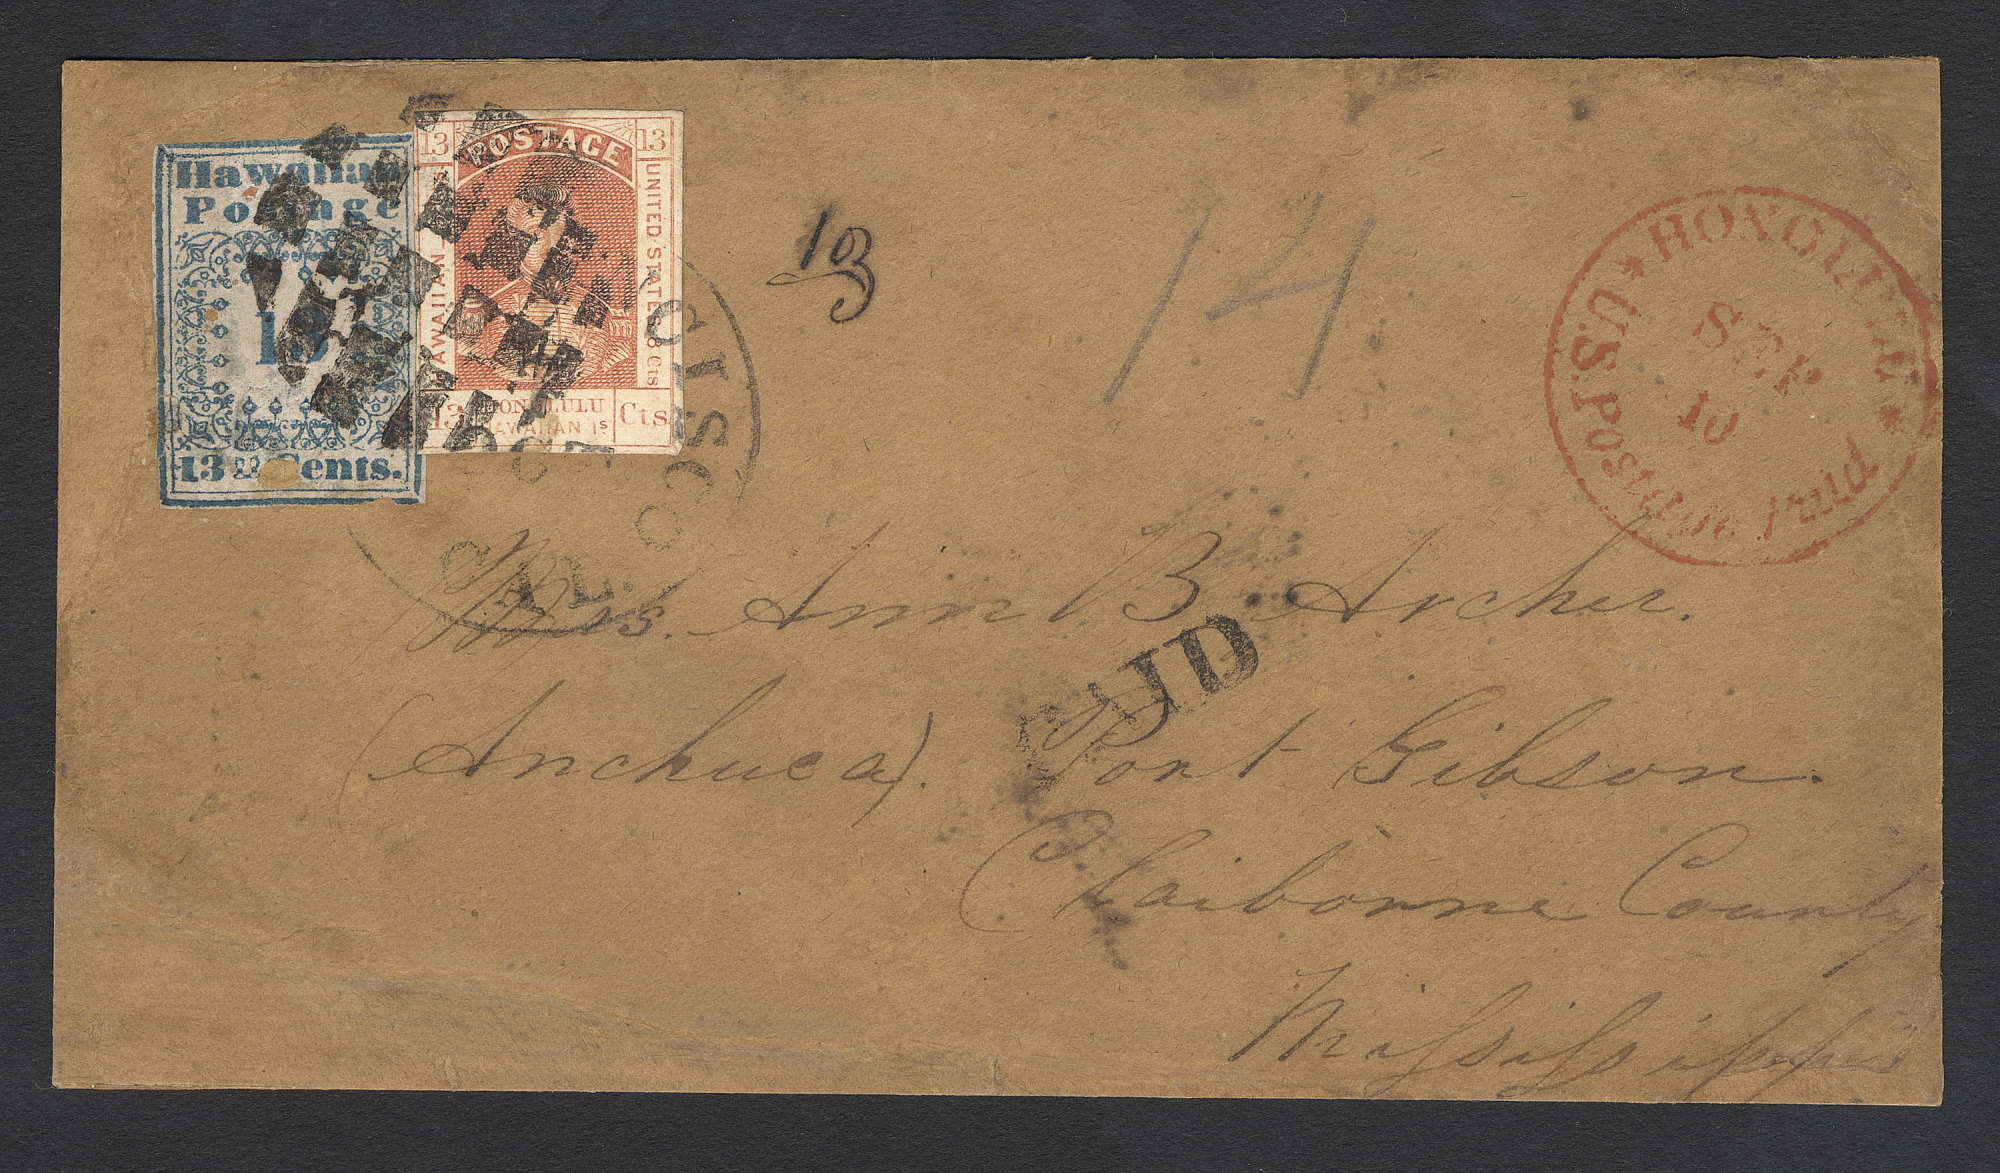 Hawaiian
Postage
13
13 Cents.
13 POSTAGE 13
HAWAIIAN
UNITED STATES 8 Cts
13 HONOLULU Cts.
HAWAIIAN Is
CISCO
CAL.
OCT
14
★ HONOLULU ★
U.S. Postage Paid
SEP
10
PAID
Mrs. Ann B Archer.
(Anchuca). Port Gibson.
Claiborne County
Mississippi